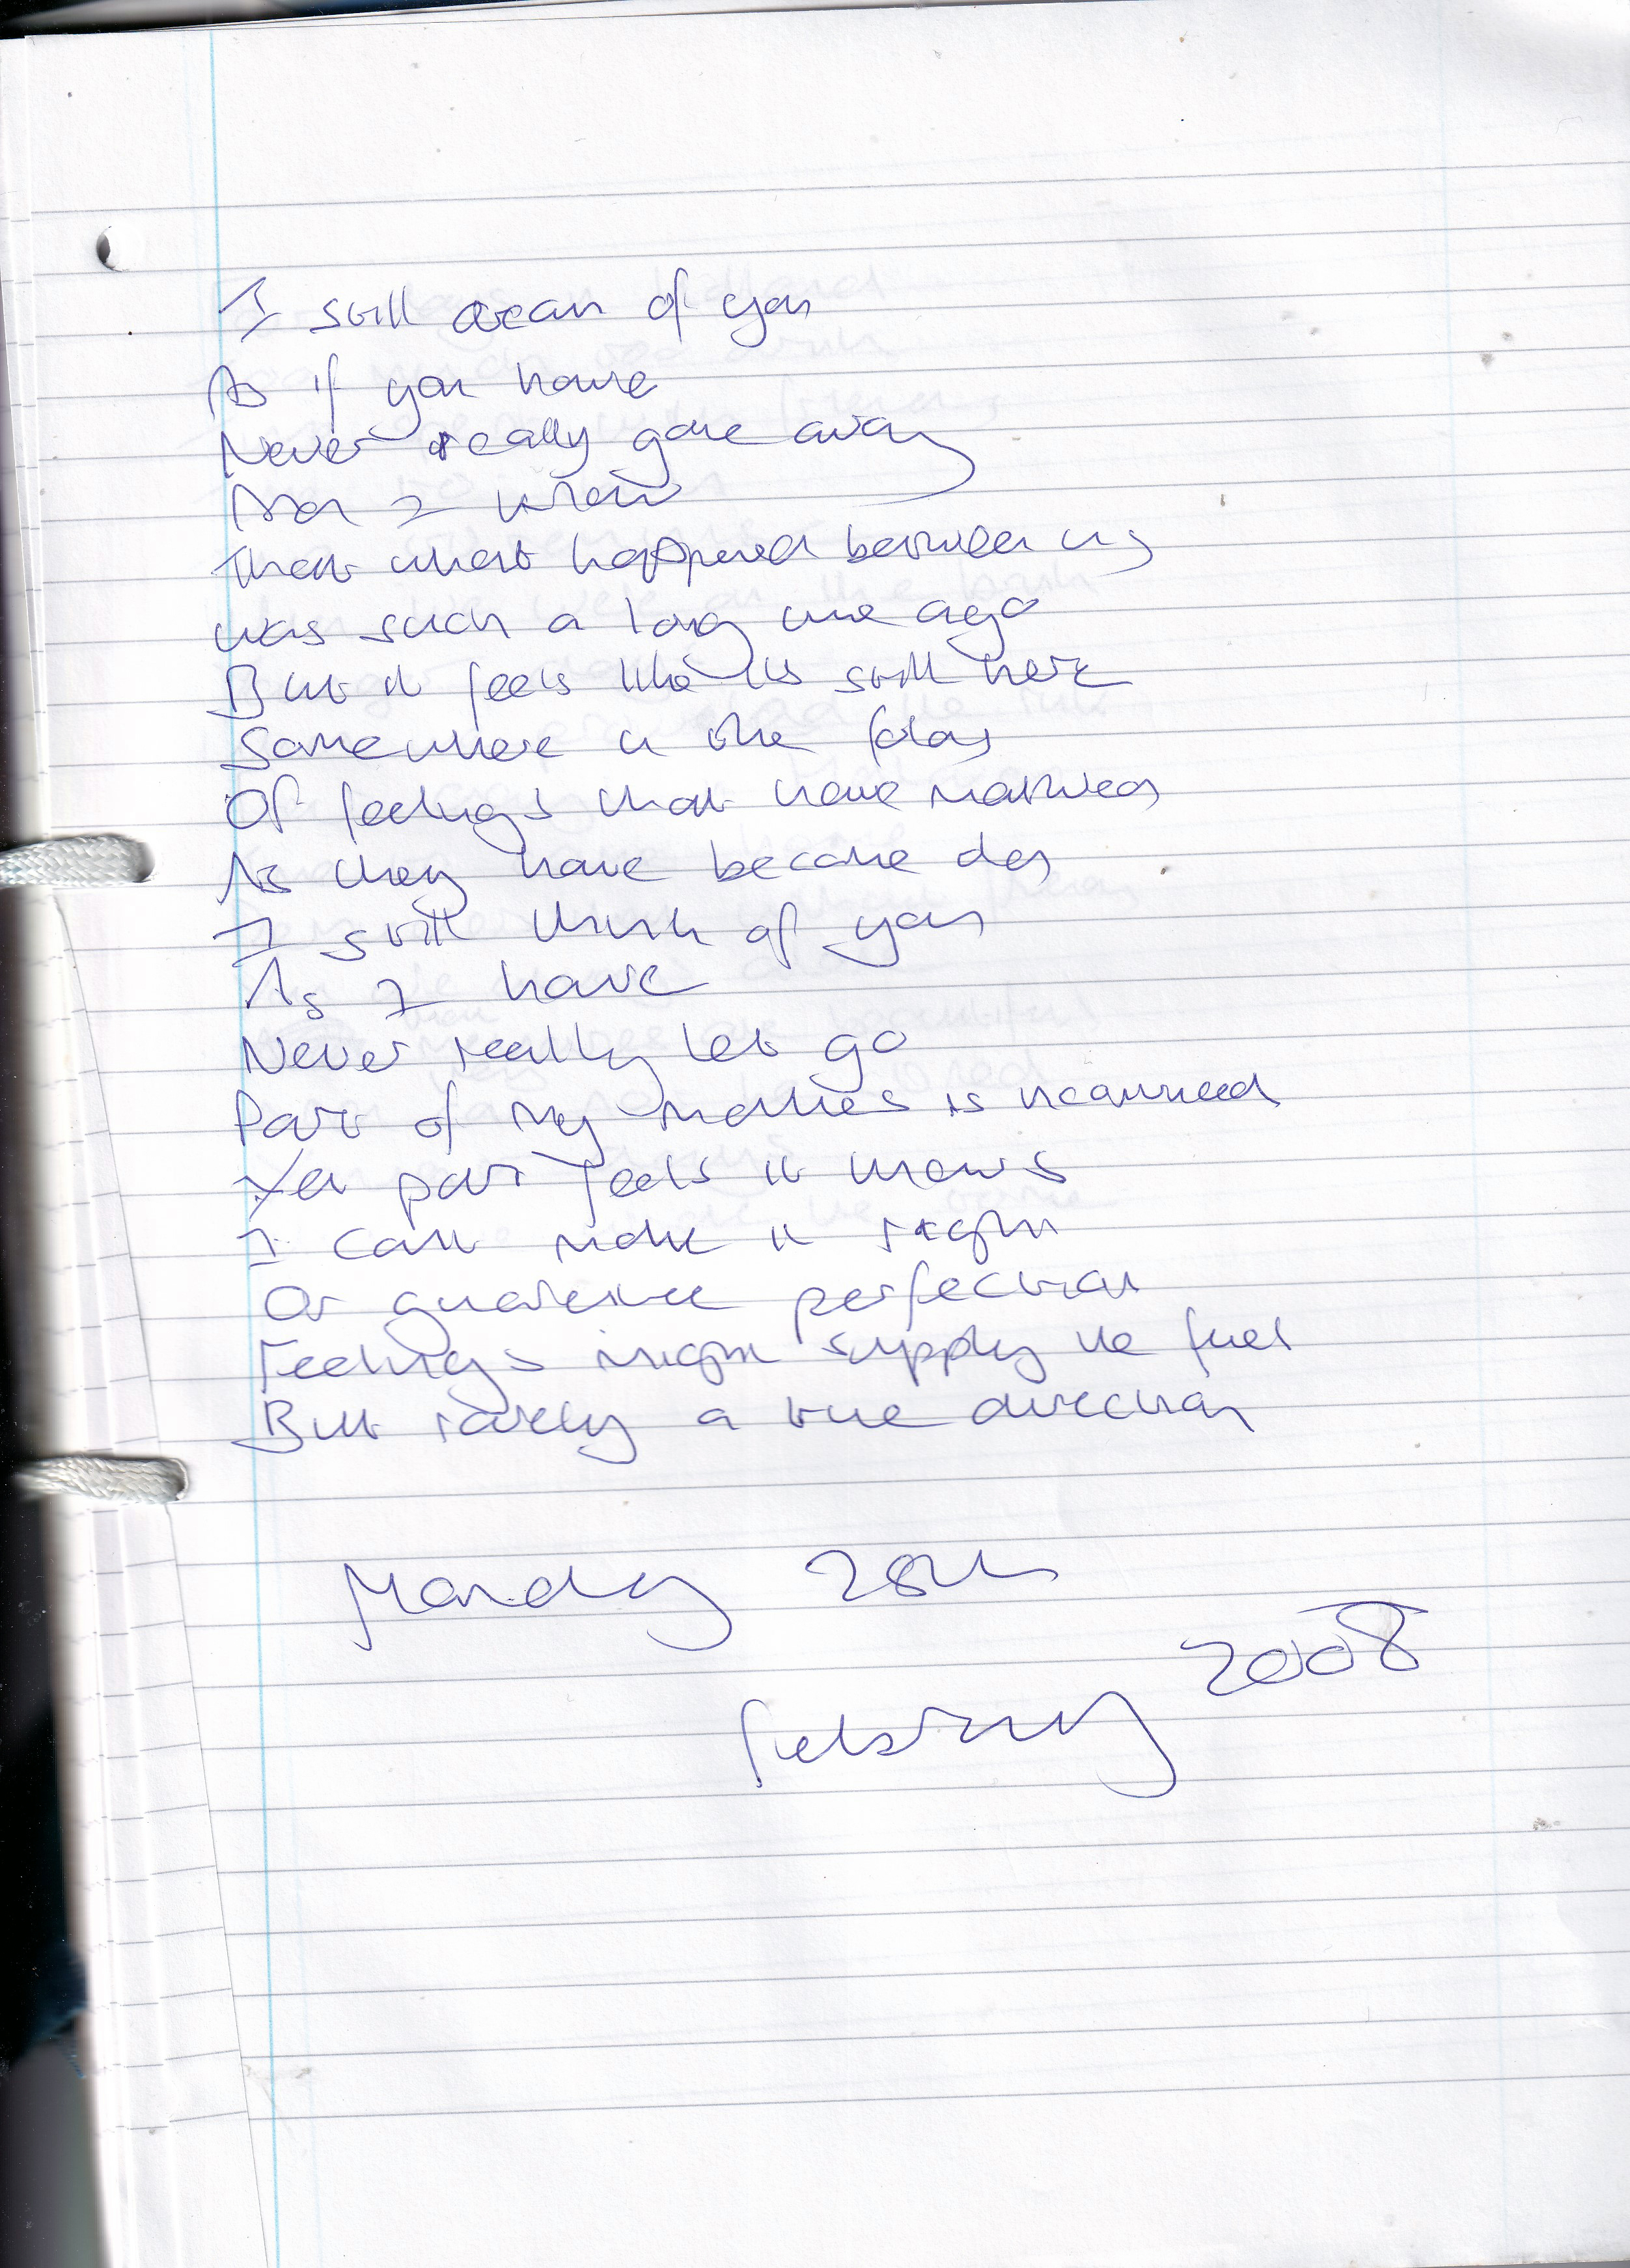 I still dream of you
As if you have
Never really gone away
And I know
That what happened between us
was such a long time ago
But it feels like its still here
Somewhere in the folds
Of feelings that have matured
As they have become
I still think of you
As I have
Never really let go
Part of my is
Yet part feels it knows
I cant make it right
Or guarantee perfection
Feelings might supply the fuel
But rarely a true direction
Monday 28th
2008
February